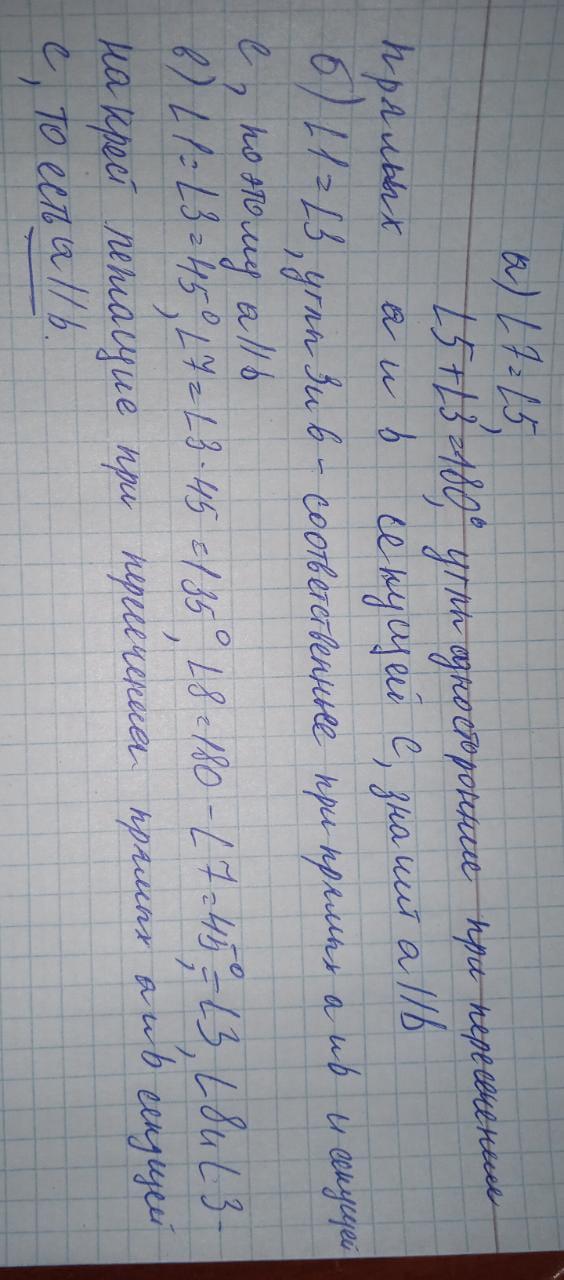 а) ∠7=∠5,
∠5+∠3=180°, углы односторонние при пересечении
прямых а и b секущей с, значит а||b
б) ∠1=∠3, углы 3 и в - соответственные при прямых а и b и секущей
с, поэтому а||b
в) ∠1=∠3=45°, ∠7=∠3·45=135°, ∠8=180-∠7=45°,=∠3, ∠8и∠3-
накрест лежащие при пересечении прямых а и b секущей
с, то есть а||b.